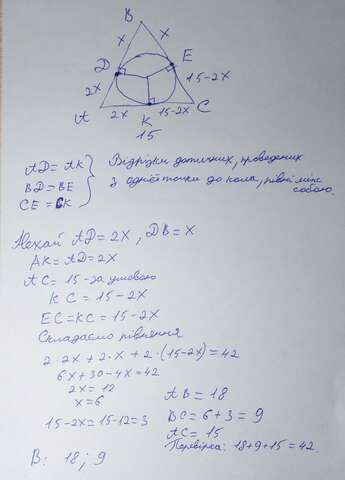 B
x x
D E
2x 15-2x
A 2x K 15-2x C
15
AD = AK
BD = BE
CE = CK
Відрізки дотичних, проведених
з однієї точки до кола, рівні між
собою.
Нехай AD = 2x, DB = x
AK = AD = 2x
AC = 15 - за умовою
KC = 15 - 2x
EC = KC = 15 - 2x
Складаємо рівняння
2·2x + 2·x + 2·(15-2x) = 42
6x + 30 - 4x = 42
2x = 12
x = 6
15-2x = 15-12 = 3
AB = 18
BC = 6 + 3 = 9
AC = 15
Перевірка: 18+9+15 = 42.
В: 18; 9